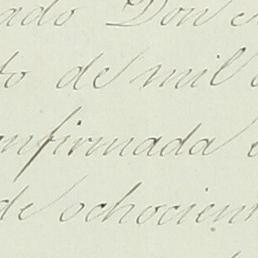 ado Don
to de mil
nfirmada
de ochocien